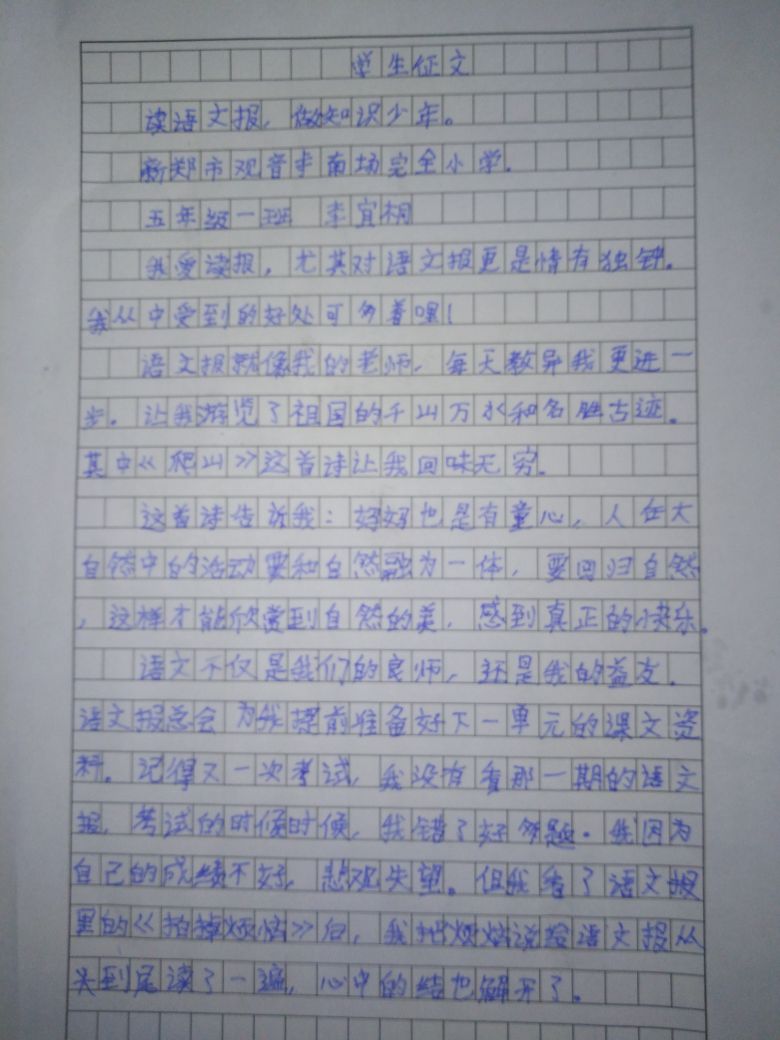 学生征文
读语文报，做知识少年。
新郑市观音寺南场完全小学。
五年级一班 李宜桐
我爱读报，尤其对语文报更是情有独钟。
我从中受到的好处可多着哩！
语文报就像我的老师，每天教导我更进一
步。让我游览了祖国的千山万水和名胜古迹。
其中《爬山》这首诗让我回味无穷。
这首诗告诉我：好好也是有童心，人在大
自然中的活动要和自然融为一体，要回归自然
，这样才能欣赏到自然的美，感到真正的快乐。
语文不仅是我们的良师，还是我的益友。
语文报总会为我提前准备好下一单元的课文资
料。记得又一次考试，我没有看那一期的语文
报，考试的时候时候，我错了好多题。我因为
自己的成绩不好，悲观失望。但我看了语文报
里的《拍掉烦恼》后，我把烦恼说给语文报从
头到尾读了一遍，心中的结也解开了。